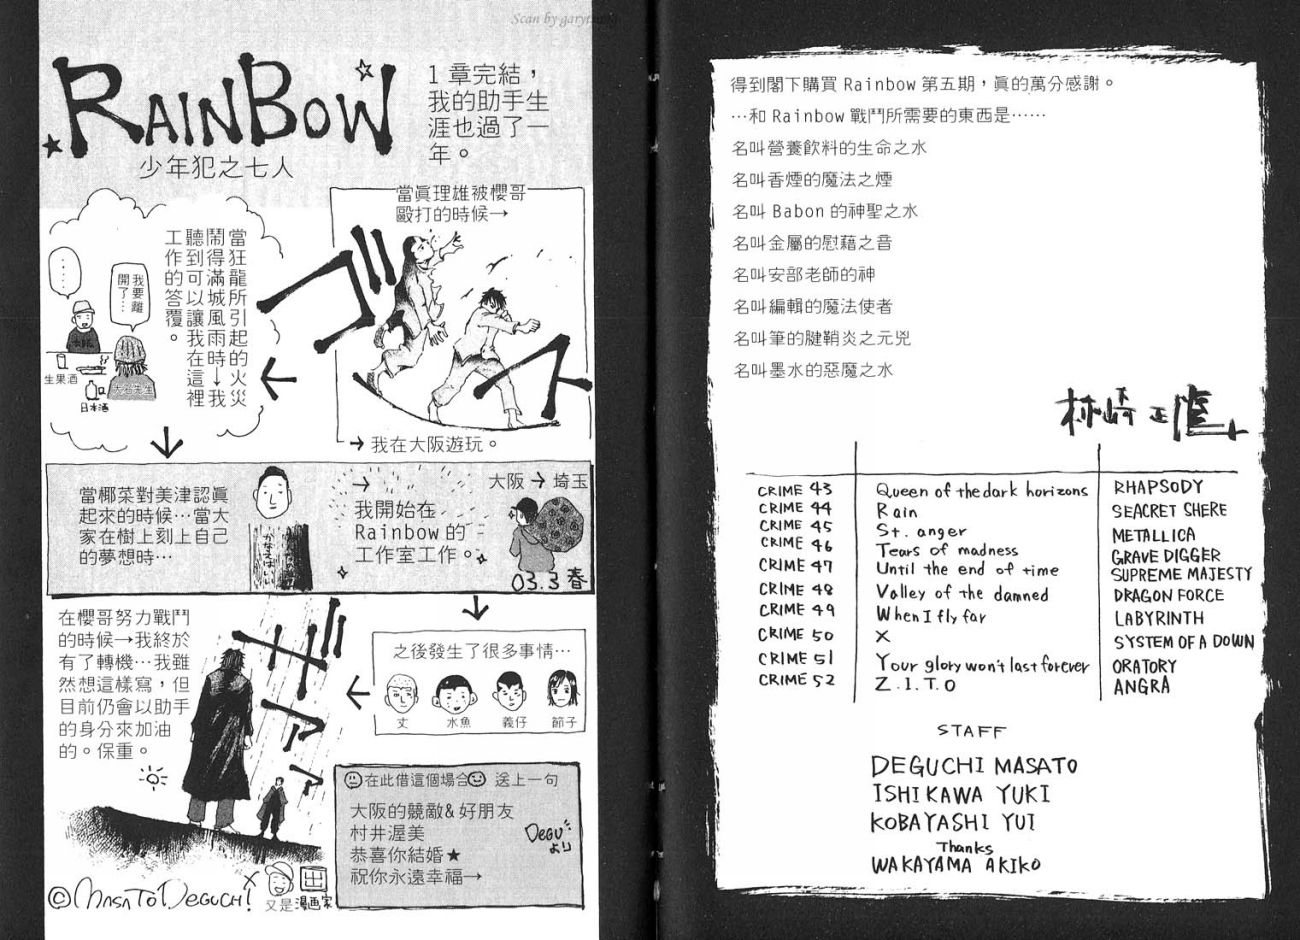 Scan by garyt
RAINBOW
少年犯之七人
1章完結，
我的助手生
涯也過了一
年。
當眞理雄被櫻哥
毆打的時候→
ゴ
スト
→我在大阪遊玩。
當狂龍所引起的火災
鬧得滿城風雨時↓我
聽到可以讓我在這裡
工作的答覆。
‥‥
我要離
開了…
生果酒
日本酒
當椰菜對美津認眞
起來的時候…當大
家在樹上刻上自己
的夢想時…
→
我開始在
Rainbow的
工作室工作。
大阪→埼玉
03.3春
之後發生了很多事情…
丈
水魚
義仔
節子
在櫻哥努力戰鬥
的時候→我終於
有了轉機…我雖
然想這樣寫，但
目前仍會以助手
的身分來加油
的。保重。
ザァァァ
在此借這個場合 送上一句
大阪的競敵&好朋友
村井渥美
恭喜你結婚★
祝你永遠幸福→
DEGU
より
©MASATO DEGUCHI
又是漫画家
出
得到閣下購買Rainbow第五期，眞的萬分感謝。
…和Rainbow戰鬥所需要的東西是……
名叫營養飲料的生命之水
名叫香煙的魔法之煙
名叫Babon的神聖之水
名叫金屬的慰藉之音
名叫安部老師的神
名叫編輯的魔法使者
名叫筆的腱鞘炎之元兇
名叫墨水的惡魔之水
CRIME 43 Queen of the dark horizons RHAPSODY
CRIME 44 Rain SEACRET SHERE
CRIME 45 St. anger METALLICA
CRIME 46 Tears of madness GRAVE DIGGER
CRIME 47 Until the end of time SUPREME MAJESTY
CRIME 48 Valley of the damned DRAGON FORCE
CRIME 49 When I fly far LABYRINTH
CRIME 50 X SYSTEM OF A DOWN
CRIME 51 Your glory won't last forever ORATORY
CRIME 52 Z.I.T.O ANGRA
STAFF
DEGUCHI MASATO
ISHIKAWA YUKI
KOBAYASHI YUI
Thanks
WAKAYAMA AKIKO